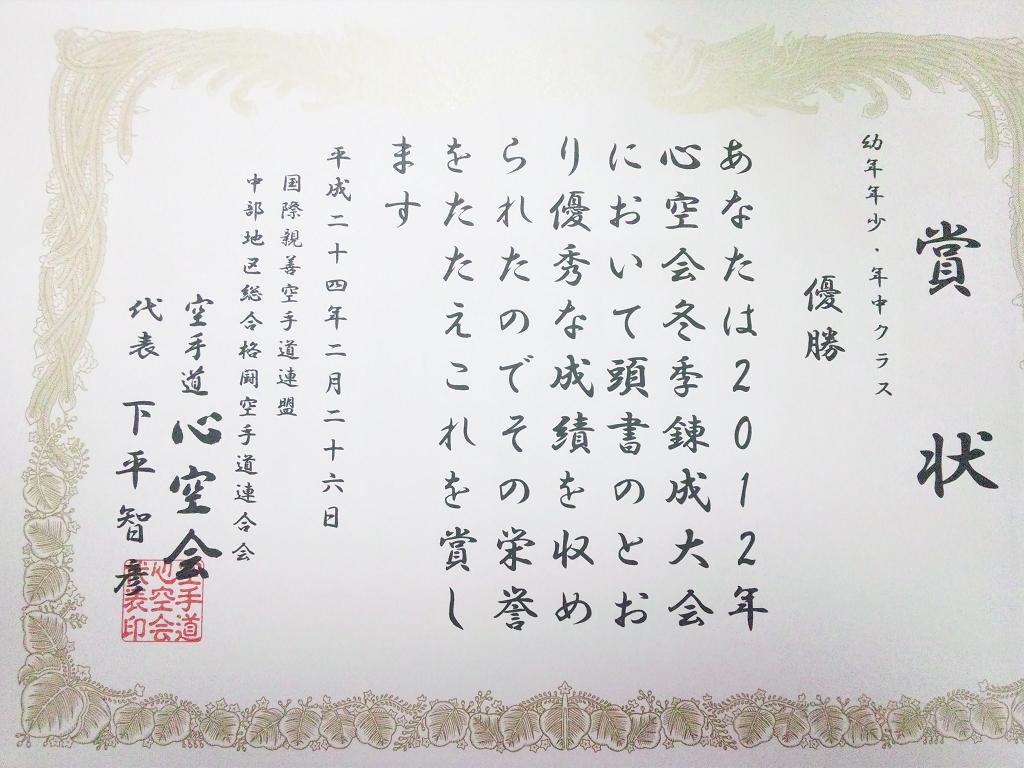 賞状
幼年年少・年中クラス
優勝
あなたは2012年
心空会冬季錬成大会
において頭書のとお
り優秀な成績を収め
られたのでその栄誉
をたたえこれを賞し
ます
平成二十四年二月二十六日
国際親善空手道連盟
中部地区総合格闘空手道連合会
空手道 心空会
代表 下平智彦
空手道
心空会
代表印